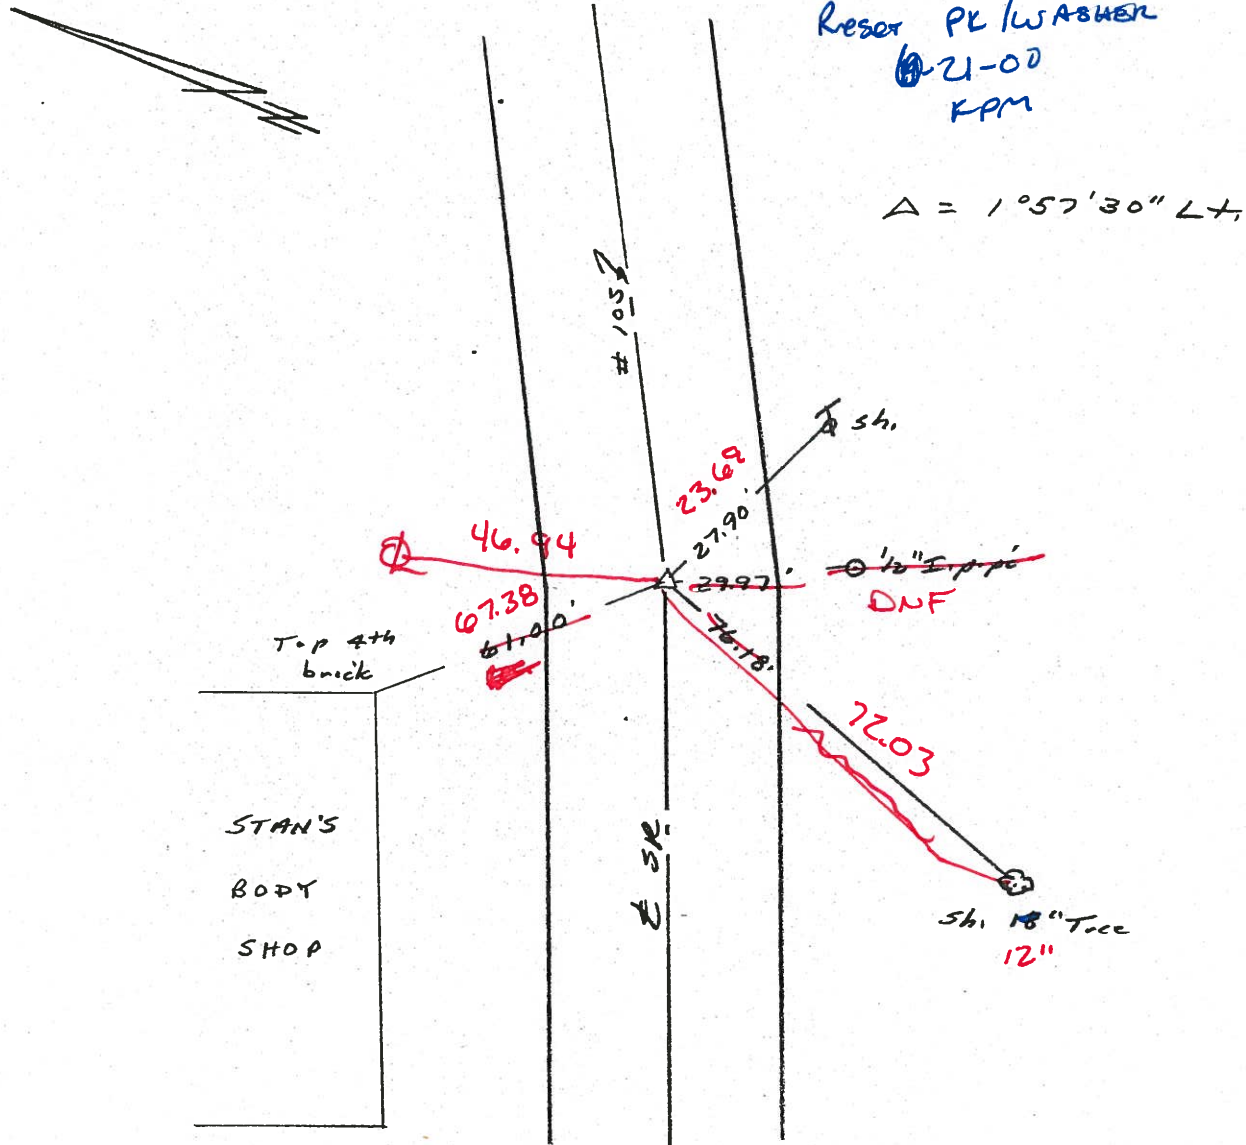 Reset PK/WASHER
21-00
KPM
Δ = 1°57'30" Lt.
# 1057
sh.
23.69
27.90'
46.94
29.97'
1/2" I.p.
DNF
67.38
61.00'
76.18'
Top 4th
brick
72.03
STAN'S
BODY
SHOP
℄ SR.
sh. 18" Tree
12"